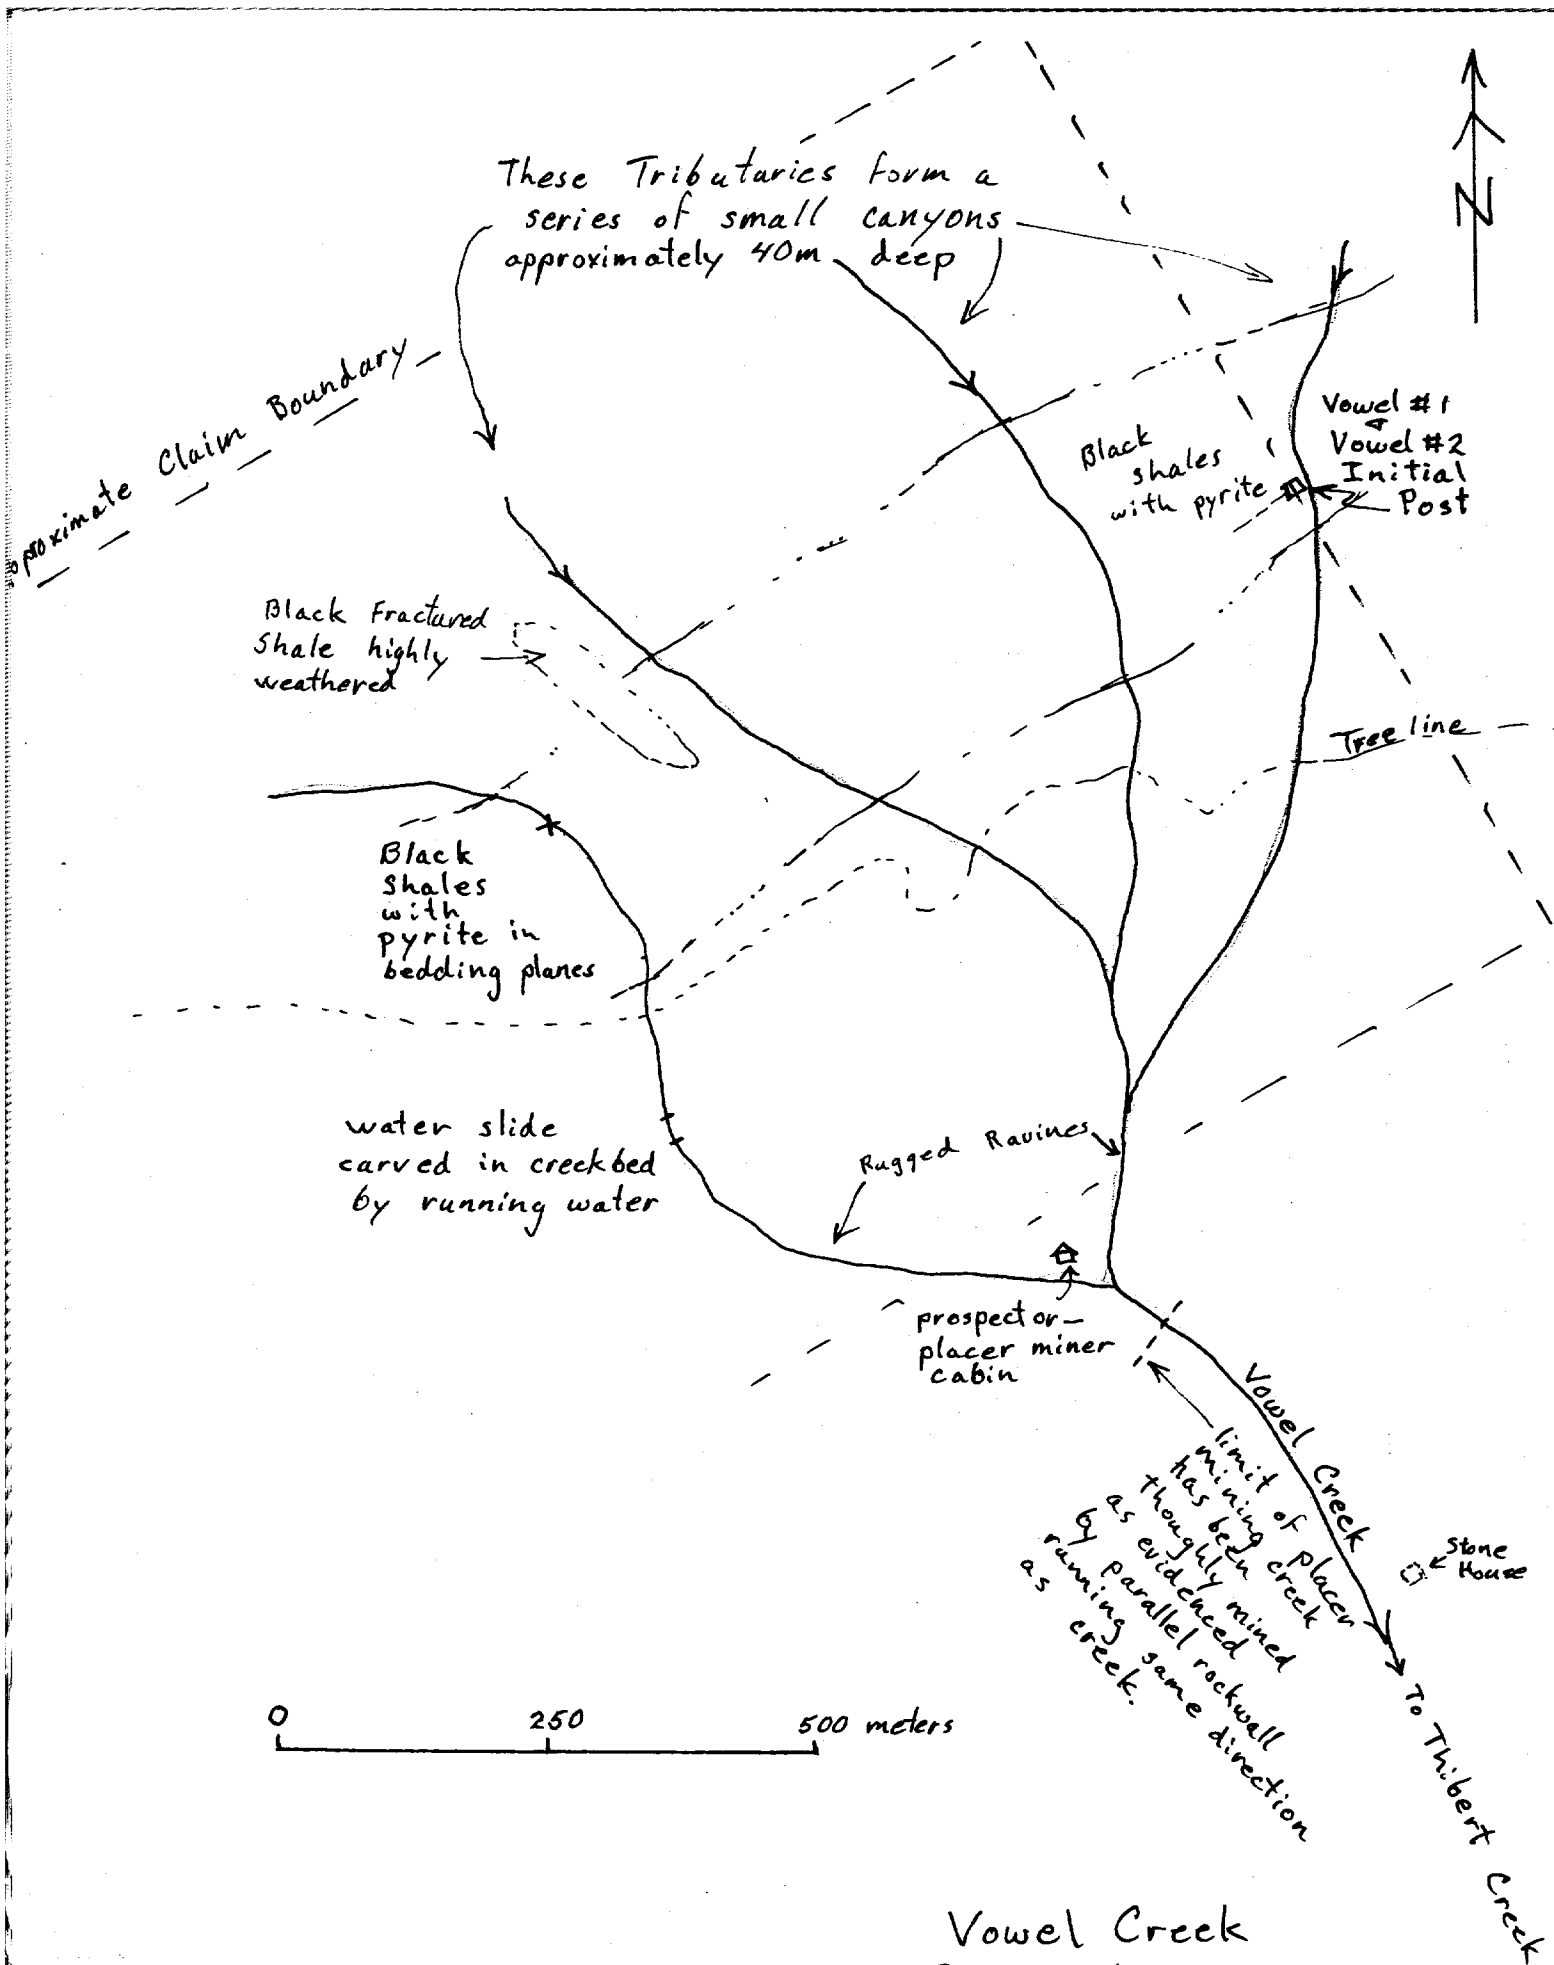 These Tributaries form a
series of small canyons
approximately 40m deep
N
Claim Boundary
Vowel #1
&
Vowel #2
Initial
Post
Black
shales
with pyrite
Black Fractured
Shale highly
weathered
Tree line
Black
Shales
with
pyrite in
bedding planes
water slide
carved in creekbed
by running water
Rugged Ravines
prospector-
placer miner
cabin
Vowel Creek
limit of placer
mining creek
has been
thoughly mined
as evidenced
by parallel rockwall
running same direction
as creek.
Stone
House
To Thibert Creek
0 250 500 meters
Vowel Creek